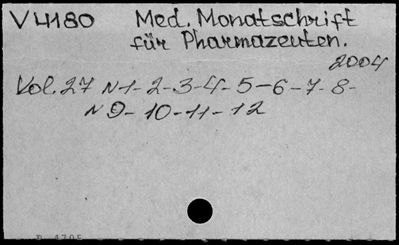 V4180 Med. Monatschrift
für Pharmazeuten.
2004
Vol. 27 N1-2-3-4-5-6-7-8-
N9-10-11-12